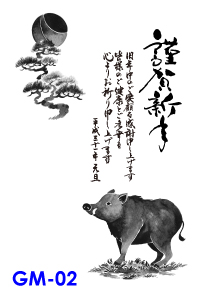 謹賀新年
旧年中のご愛顧を感謝申し上げます
皆様のご健康とご多幸を
心よりお祈り申し上げます
平成三十一年 元旦
GM-02